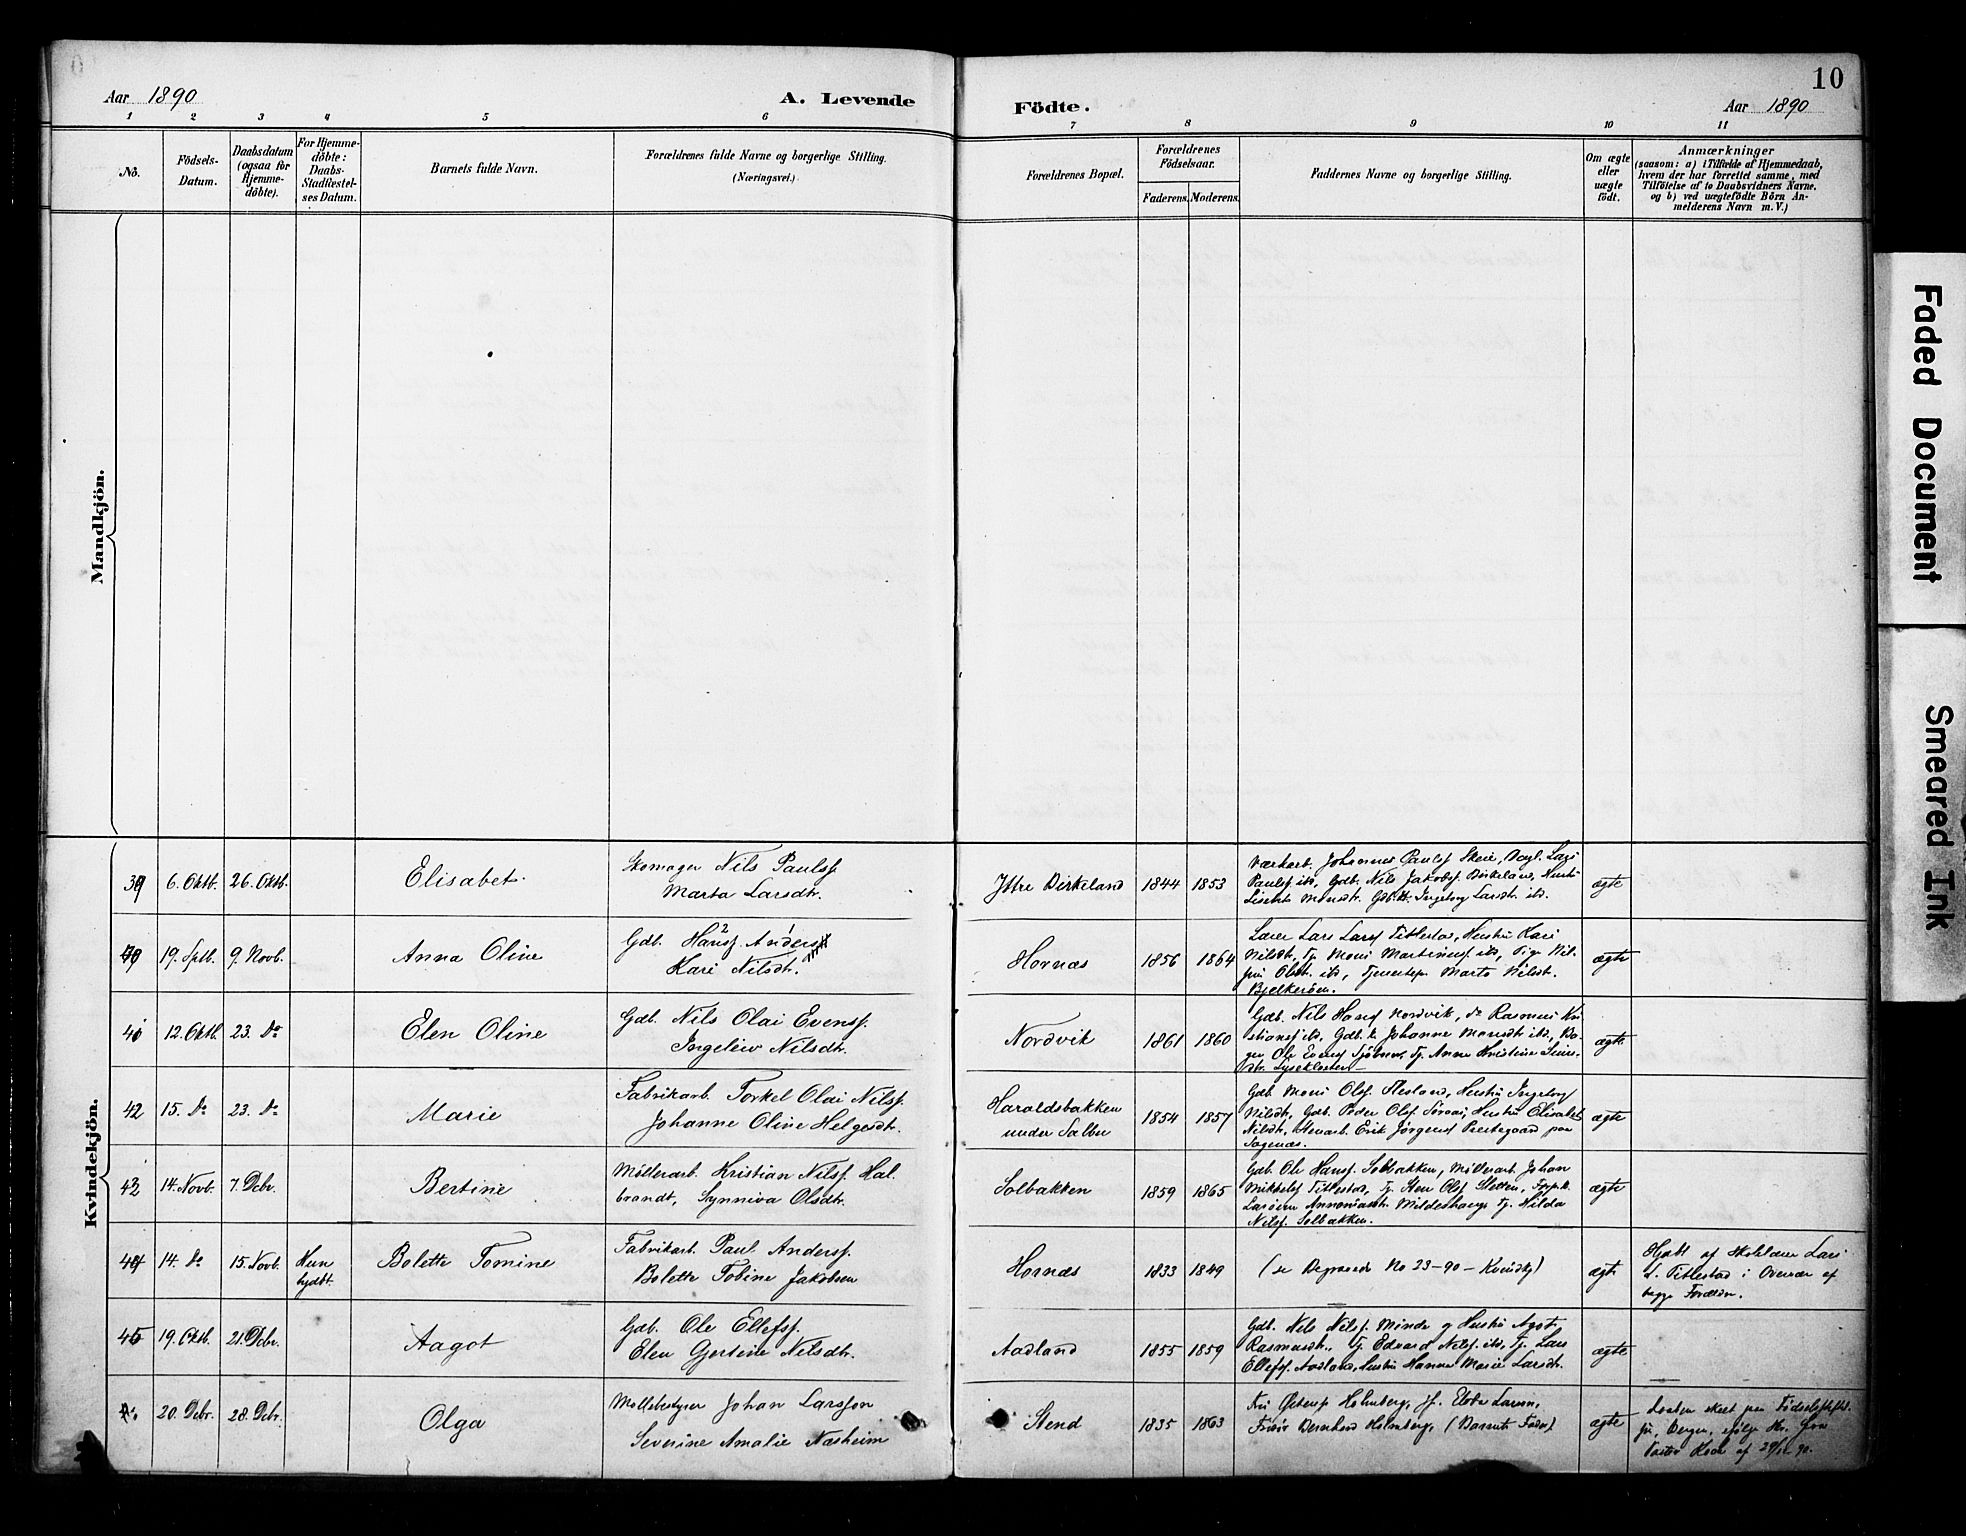 Aar 1890
A. Levende
Födte.
10
Aar 1890
1 2 3 4 5 6 7 8 9 10 11
No.
Födsels-
Datum.
Daabsdatum
(ogsaa for
Hjemme-
döbte).
For Hjemme-
döbte:
Daabs-
Stadfæstel-
ses Datum.
Barnets fulde Navn.
Forældrenes fulde Navne og borgerlige Stilling.
(Næringsvei.)
Forældrenes Bopæl.
Forældrenes
Födselsaar.
Faderens. Moderens.
Faddernes Navne og borgerlige Stilling.
Om ægte
eller
uægte
födt.
Anmærkninger
(saasom: a) i Tilfælde af Hjemmedaab,
hvem der har forrettet samme, med
Tilföielse af to Daabsvidners Navne,
og b) ved uægtefödte Börn An-
melderens Navn m. V.)
Mandkjön.
Kvindekjön.
39 6. Oktb. 26. Oktb. Elisabet.
Skomager Nils Paulsf.
Marta Larsdtr.
Ytre Birkeland 1844 1853
Værkarb. Johannes Paulsf Skeie, Lars
Paulsf ibd, Gdb. Nils Jakobsf. Birkeland, Hustr.
Lisbeta Monsdtr. Ingeborg Larsdtr. ibd.
ægte
19. Sptb. 9. Novb. Anna Oline
Gdb. Hansf. Anders
Kari Nilsdtr.
Hornæs 1856 1864
Lærer Lars Larsf Titlestad, Hustru Kari
Nilsdtr, Tj. Mons Martinusf ibd, Pige
Olsdtr. ibd, Marta Nilsdtr.
Bjelkeröen.
ægte
12. Oktb. 23. Do Elen Oline
Gdb. Nils Olai Evensf.
Ingeleiv Nilsdtr.
Nordvik 1861 1860
Gdb. Nils Hansf Nordvik, do Rasmus Kri
stiansf ibd, Gdb. k. Johanne Monsdtr ibd,
Ole Evensf Tj. Anna Kristine
dtr. Lyseklosten
ægte
42 15. Do 23. Do Marie
Fabrikarb. Torkel Olai Nilsf.
Johanne Oline Helgesdtr.
Haroldsbakken
under Salbu
1854 1857
Gdb. Mons Olsf. Flesland, Hustru Ingeborg
Nilsdtr, Gdb. Peder Olsf. Hustru Elisabet
Nilsdtr, Erik Jörgensf Prestegaard paa
Sagenæs.
ægte
14. Novb. 7. Debr. Bertine
Möllerarb. Kristian Nilsf. Hal
brandt, Synniva Olsdtr.
Solbakken 1859 1865
Gdb. Ole Hansf. Solbakken, Möllerarb. Johan
Mikkelsf Titlestad, Tj. Sten Olsf Sletten,
Mildeshaug, Tj. Hilda
Nilsf. Solbakken.
ægte
14. Do 15. Novb. Kun
hjdbt.
Bolette Tomine
Fabrikarb. Paul Andersf.
Bolette Tobine Jakobsen
Hornæs 1833 1849
(se Begravede No 23-90 - Kvindkj)
ægte
Hjdbt af Skolelærer Lars
L. Titlestad i Overvær af
begge Forældre.
45 19. Oktb. 21. Debr. Aagot
Gdb. Ole Ellefsf.
Elen Gjertine Nilsdtr.
Aadland 1855 1859
Gdb. Nils Nilsf. Minde og Hustru Agot
Rasmusdtr. Tj. Edvard Nilsf. ibd, Tj. Lars
Ellefsf. Aadland, Hustru Hanna Marie Larsdtr.
ægte
20. Debr. 28. Debr. Olga
Möllebestyrer Johan Larssen
Severine Amalie Næsheim
Stend 1835 1863
Fru Holmberg, jf. Ebba Larsen,
Frisör Bernhard Holmberg, (Barnets Fader)
ægte
Daaben skeet paa Födselsstiftel
sen, Bergen, ifölge
Pastor Kode af 29/12 90.
Faded Document
Smeared Ink